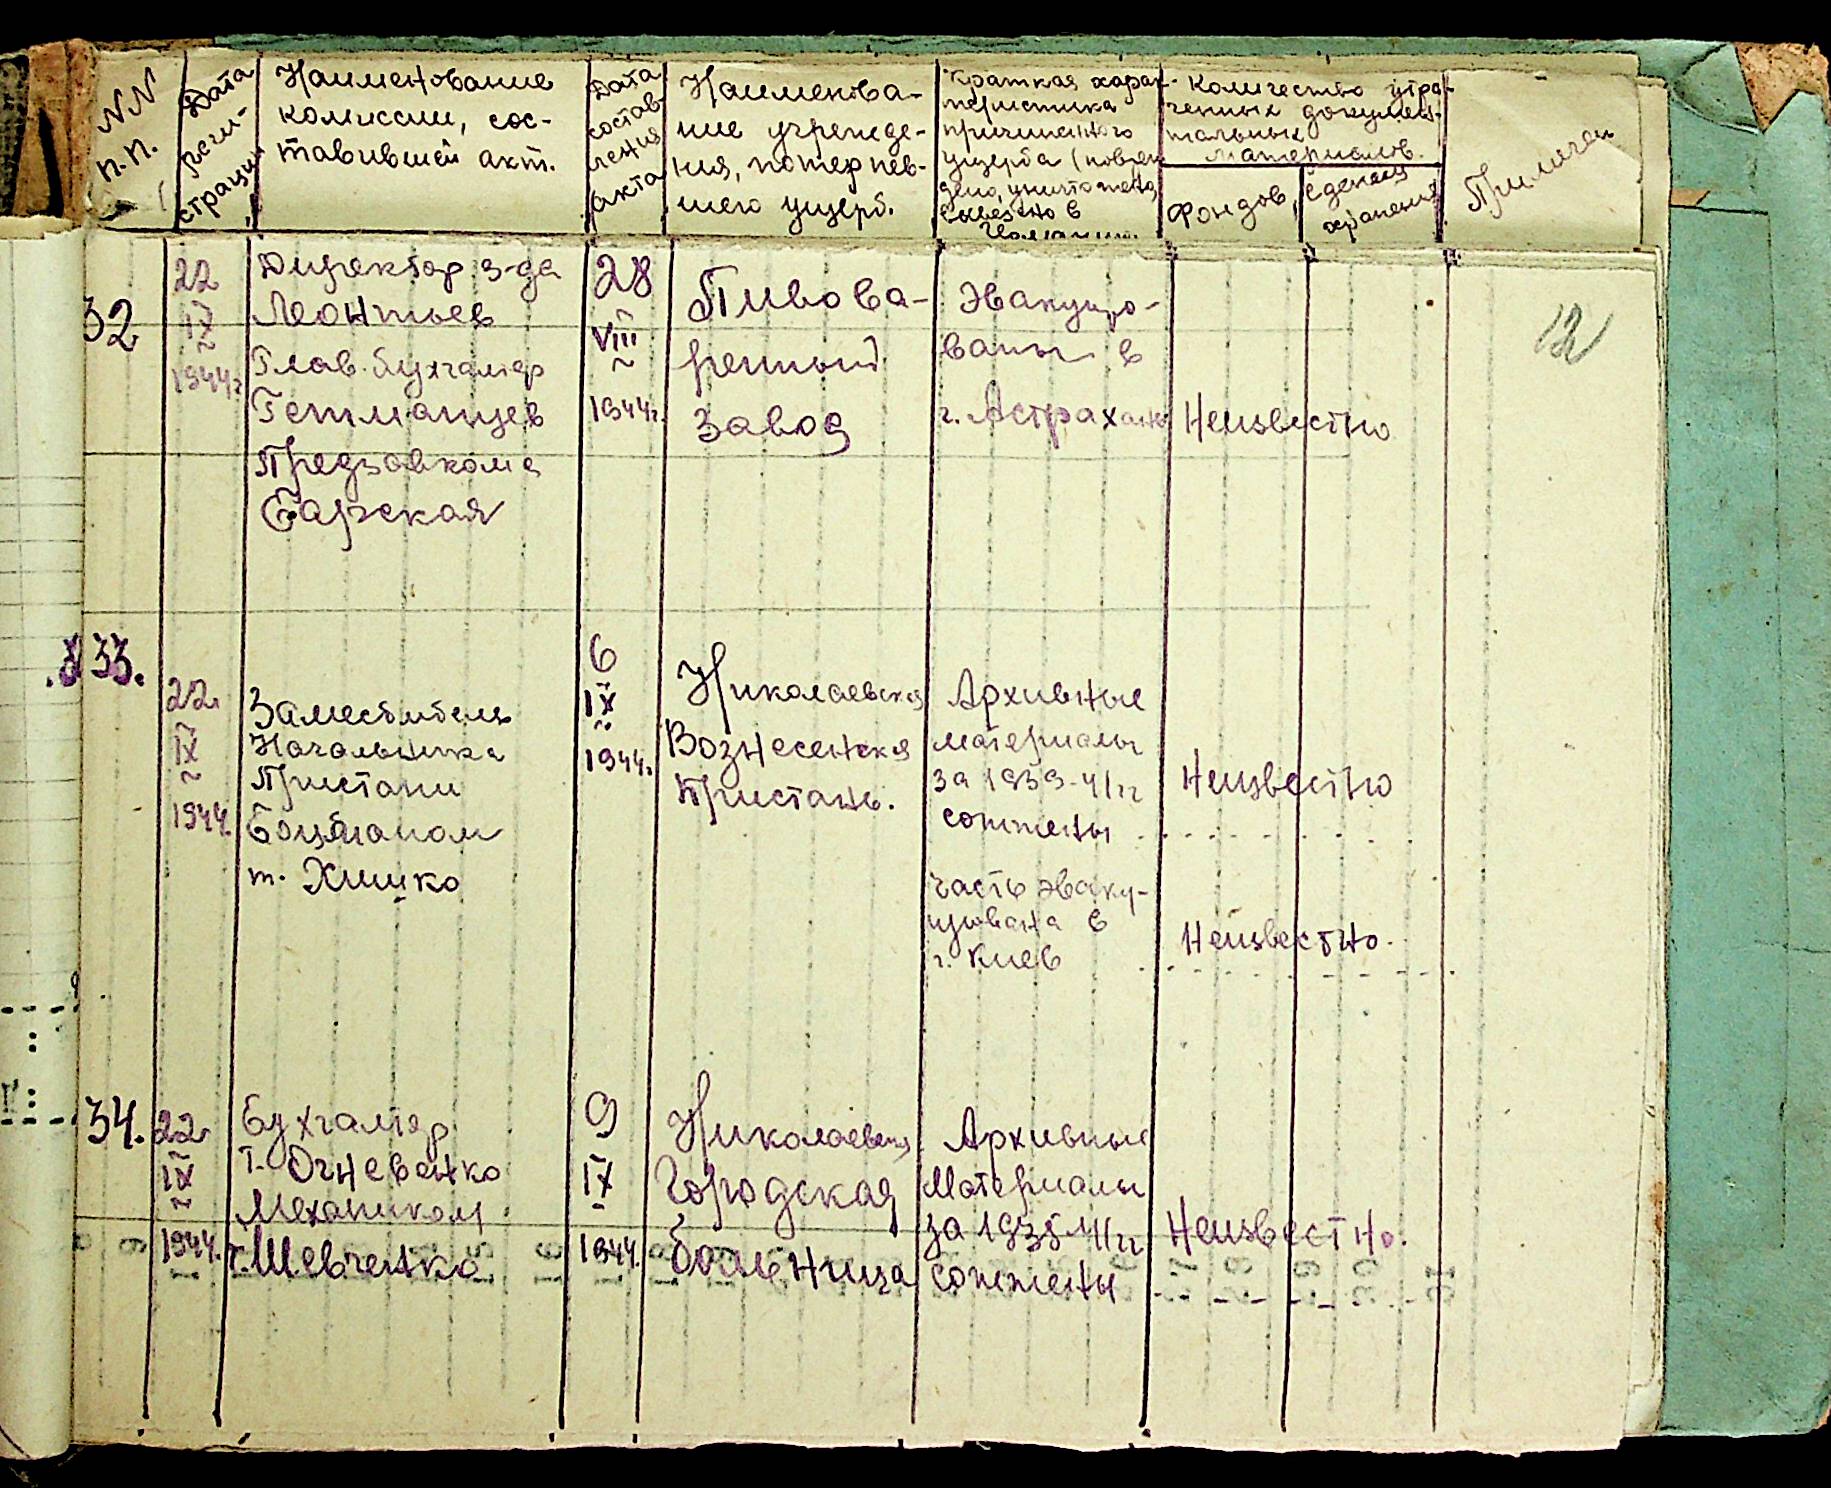 NN
п.п.
Дата
реги-
страции
Наименование
комиссии, сос-
тавившей акт.
Дата
состав
ления
акта
Наименова-
ние учрежде-
ния, потерпев-
шего ущерб.
Краткая харак-
теристика
причиненного
ущерба (повреж
дено, уничтожено,
вывезено в
Количество утра-
ченных докумен-
тальных
материалов.
Фондов,
Единиц
хранения
Примечан
12
32
22
IX
1944г.
Директор з-да
Леонтьев
Глав. бухгалтер
Гетманцев
Предзавкома
Барская
28
VIII
1944г.
Пивова-
ренный
Завод
Эвакуиро-
ваны в
г. Астрахань
Неизвестно
33.
22
IX
1944.
Заместитель
Начальника
Пристани
Боцманом
т. Хишко
6
IX
1944.
Николаевская
Вознесенская
Пристань.
Архивные
материалы
за 1939-41гг
сожжены
Неизвестно
Часть эваку-
ирована в
г. Киев
Неизвестно.
34.
22
IX
1944.
Бухгалтер
т. Огневенко
Механиком
т. Шевченко
9
IX
1944.
Николаевск
Городская
больница
Архивные
Материалы
за 1935-41гг
сожжены
Неизвестно.